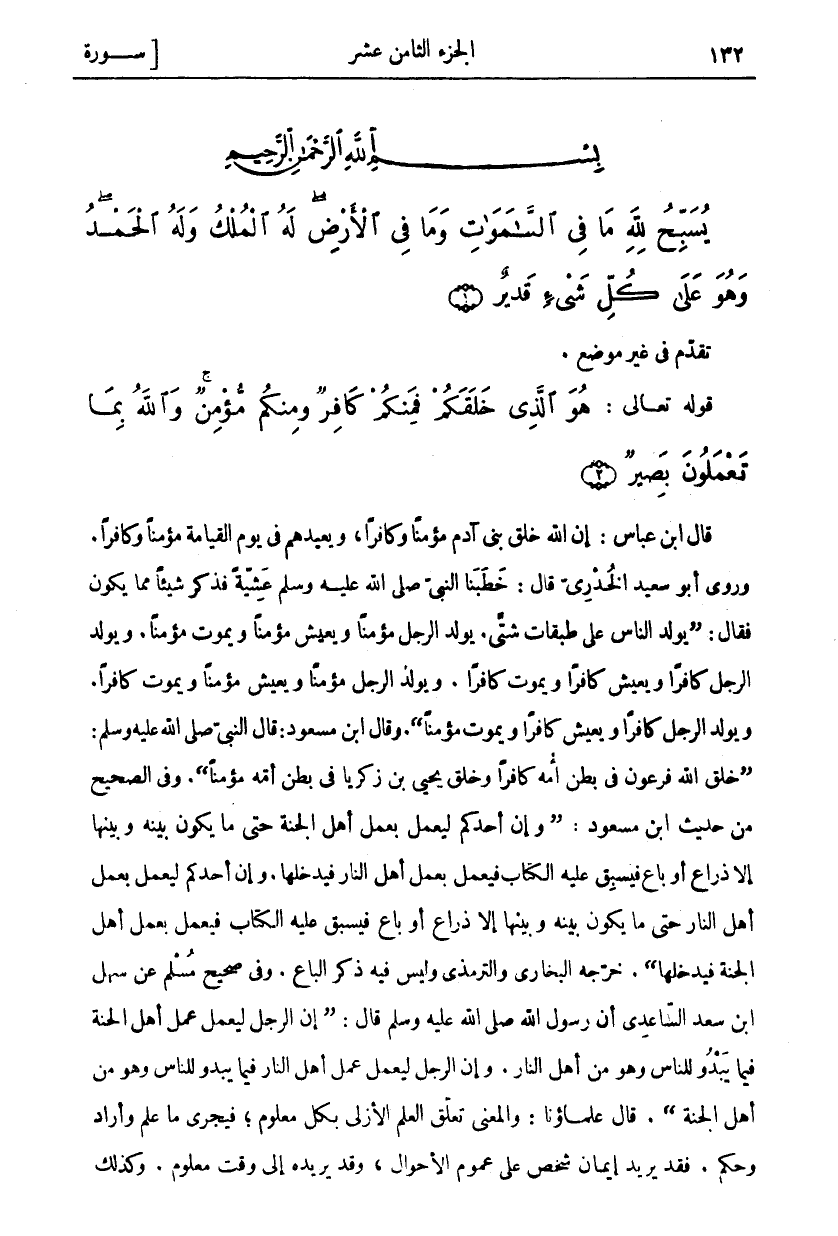 ١٣٢ الجزء الثامن عشر [ ســورة
بِسْمِ ٱللَّهِ ٱلرَّحْمَٰنِ ٱلرَّحِيمِ
يُسَبِّحُ لِلَّهِ مَا فِي ٱلسَّمَٰوَٰتِ وَمَا فِي ٱلْأَرْضِۖ لَهُ ٱلْمُلْكُ وَلَهُ ٱلْحَمْدُۖ
وَهُوَ عَلَىٰ كُلِّ شَىْءٍ قَدِيرٌ ﴿١﴾
تقدّم فى غير موضع .
قوله تعــالى : هُوَ ٱلَّذِى خَلَقَكُمْ فَمِنكُمْ كَافِرٌ وَمِنكُم مُّؤْمِنٌۚ وَٱللَّهُ بِمَا
تَعْمَلُونَ بَصِيرٌ ﴿٢﴾
قال ابن عباس : إن الله خلق بنى آدم مؤمنًا وكافرًا ، ويعيدهم فى يوم القيامة مؤمناً وكافراً .
وروى أبو سعيد الخُدْرِىّ قال : خَطَبَنا النبىّ صلى الله عليــه وسلم عَشِيّةً فذكر شيئاً مما يكون
فقال : ”يولد الناس على طبقات شتَّى . يولد الرجل مؤمنًا ويعيش مؤمنًا ويموت مؤمنًا . ويولد
الرجل كافرًا ويعيش كافرًا ويموت كافرًا . ويولد الرجل مؤمنًا ويعيش مؤمنًا ويموت كافرًا .
ويولد الرجل كافرًا ويعيش كافرًا ويموت مؤمناً“ . وقال ابن مسعود : قال النبىّ صلى الله عليه وسلم :
”خلق الله فرعون فى بطن أُمه كافرًا وخلق يحيى بن زكريا فى بطن أمّه مؤمناً“ . وفى الصحيح
من حديث ابن مسعود : ”وإن أحدكم ليعمل بعمل أهل الجنة حتى ما يكون بينه وبينها
إلا ذراع أو باع فيسبِق عليه الكتاب فيعمل بعمل أهل النار فيدخلها . وإن أحدكم ليعمل بعمل
أهل النار حتى ما يكون بينه وبينها إلا ذراع أو باع فيسبق عليه الكتاب فيعمل بعمل أهل
الجنة فيدخلها“ . خرّجه البخارى والترمذى وليس فيه ذكر الباع . وفى صحيح مُسْلم عن سهل
ابن سعد السّاعِدِى أن رسول الله صلى الله عليه وسلم قال : ”إن الرجل ليعمل عمل أهل الجنة
فيما يَبْدُو للناس وهو من أهل النار . وإن الرجل ليعمل عمل أهل النار فيما يبدو للناس وهو من
أهل الجنة“ . قال علمــاؤنا : والمعنى تعلّق العلم الأزلى بكل معلوم ؛ فيجرى ما علم وأراد
وحكم . فقد يريد إيمان شخص على عموم الأحوال ، وقد يريده إلى وقت معلوم . وكذلك